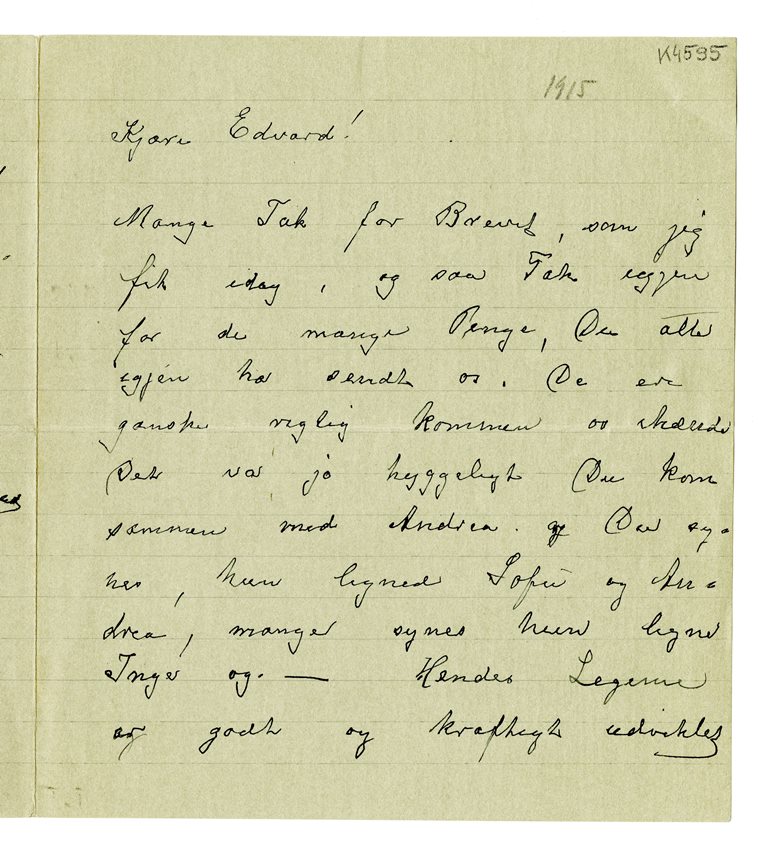 K4595
1915
Kjære Edvard!
Mange Tak for Brevet, som jeg
fik idag, og saa Tak igjen
for de mange Penge, Du atter
igjen har sendt os. De ere
ganske rigtig kommen os ihænde
Det var jo hyggeligt Du kom
sammen med Andrea. og Du sy-
nes, hun ligned Sofie og An-
drea, mange synes hun ligne
Inger og. — Hendes Legeme
er godt og kraftigt udviklet